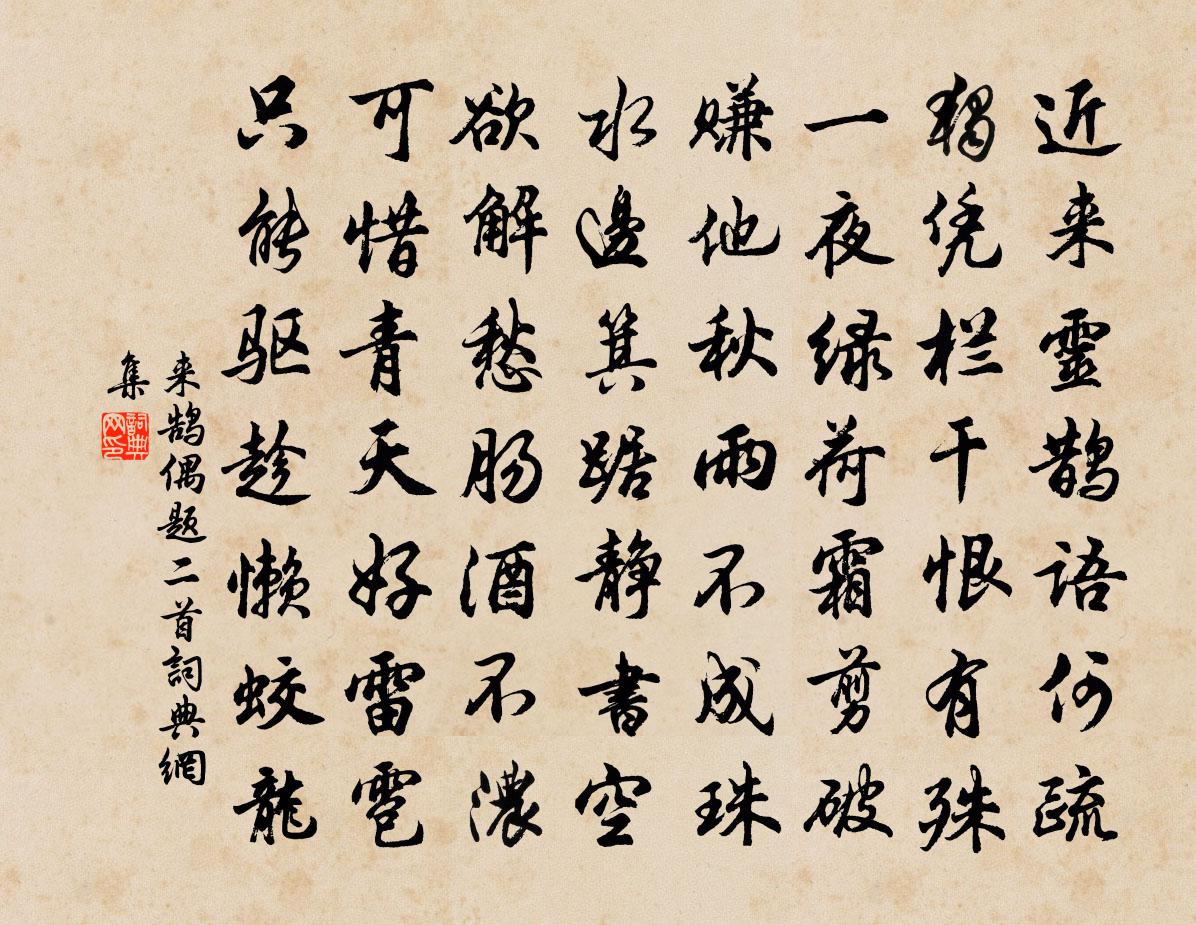 近来靈鹊语何疏
獨凭栏干恨有殊
一夜绿荷霜剪破
赚他秋雨不成珠
水邊箕踞静書空
欲解愁肠酒不濃
可惜青天好雷雹
只能驱趁懒蛟龍
来鹄偶题二首詞典網
集
詞典网印